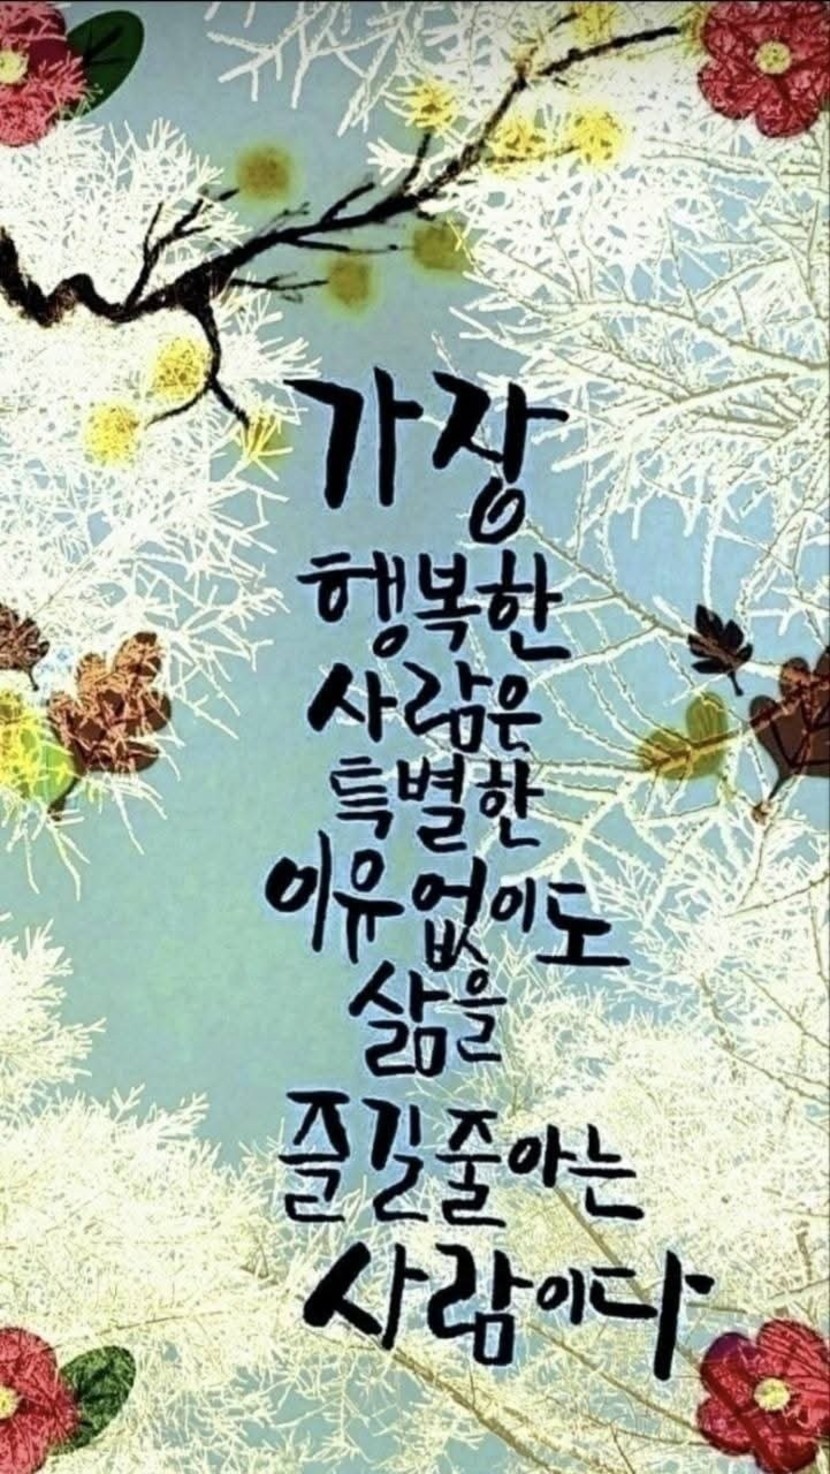 가장
행복한
사람은
특별한
이유 없이도
삶을
즐길 줄 아는
사람이다